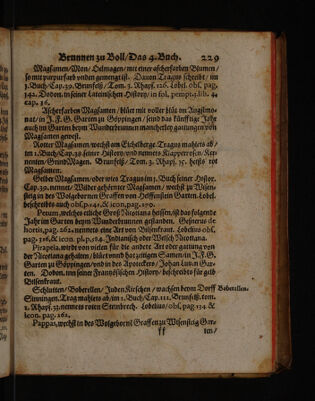 Brunnen zu Boll/Das 4. Buch. 229
Magsamen/Mon/Oelmagen/mit einer äscherfarben Blumen/
so mit purpurfarb vnden gemengt ist. Dauon Tragus schreibt/im
1. Buch/Cap.39. Brunfelß/Tom. 3. Rhapf. 126. Lobel. obs. pag.
142. Dodon. in seiner Lateinischen History/in fol. pempt. 4.lib. 4.
cap. 16.
Äscherfarben Magsamen/blüet mit voller blüt im Augstmo-
nat/in J. F. G. Garten zu Göppingen/send das fünfftige Jahr
auch im Garten beym Wunderbrunnen mancherley gattungen von
Magsamen gewest.
Rotter Magsamen/wechst am Eichelberge. Tragus mahlets ab/
im 1. Buch/Cap.38. seiner History/vnd nennets Klapperrosen/Kor-
nerosen/Grundmagen. Brunfelß/Tom. 3. Rhapf. 35. heißts rot
Magsamen.
Gelber Magsamen/oder wies Tragus im 1. Buch seiner Histor.
Cap. 39. nennet/Wilder gehörnter Magsamen/wechst zu Wisen-
steig in des Wolgebornen Graffen von Helffenstein Garten. Lobel.
beschreibts auch obs. p. 141. & icon. pag. 270.
Petum, welches etliche Groß Nicotiana heissen/ist das folgende
Jahr im Garten beym Wunderbrunnen gestanden. Gesnerus de
hortis, pag. 262. nennets eine Art von Bilsenkraut. Lobelius obs.
pag. 316. & icon. pl. p. 584. Indianisch oder Welsch Nicotiana.
Pirapela, wirdt von vielen für die andere Art oder gattung von
der Nicotiana gehalten/blüet vnd hat zeitigen Samen in J. F. G.
Garten zu Göppingen/vnd in des Apoteckers/Johan Lutzen Gar-
ten. Dodon. inn seiner Frantzösischen History/beschreibts für gelb
Bilsenkraut.
Schlutten/Boberellen/Juden Kirschen/wachsen beym Dorff Boberellen.
Sinningen. Trag mahlets ab/im 1. Buch/Cap. 111. Brunfelß. tom.
1. Rhapf. 33. nennets roten Steinbrech. Lobelius/obs. pag. 134. &
icon. pag. 262.
Pappas, wechst in des Wolgebornē Graffen zu Wisensteig Gar-
ff ten/